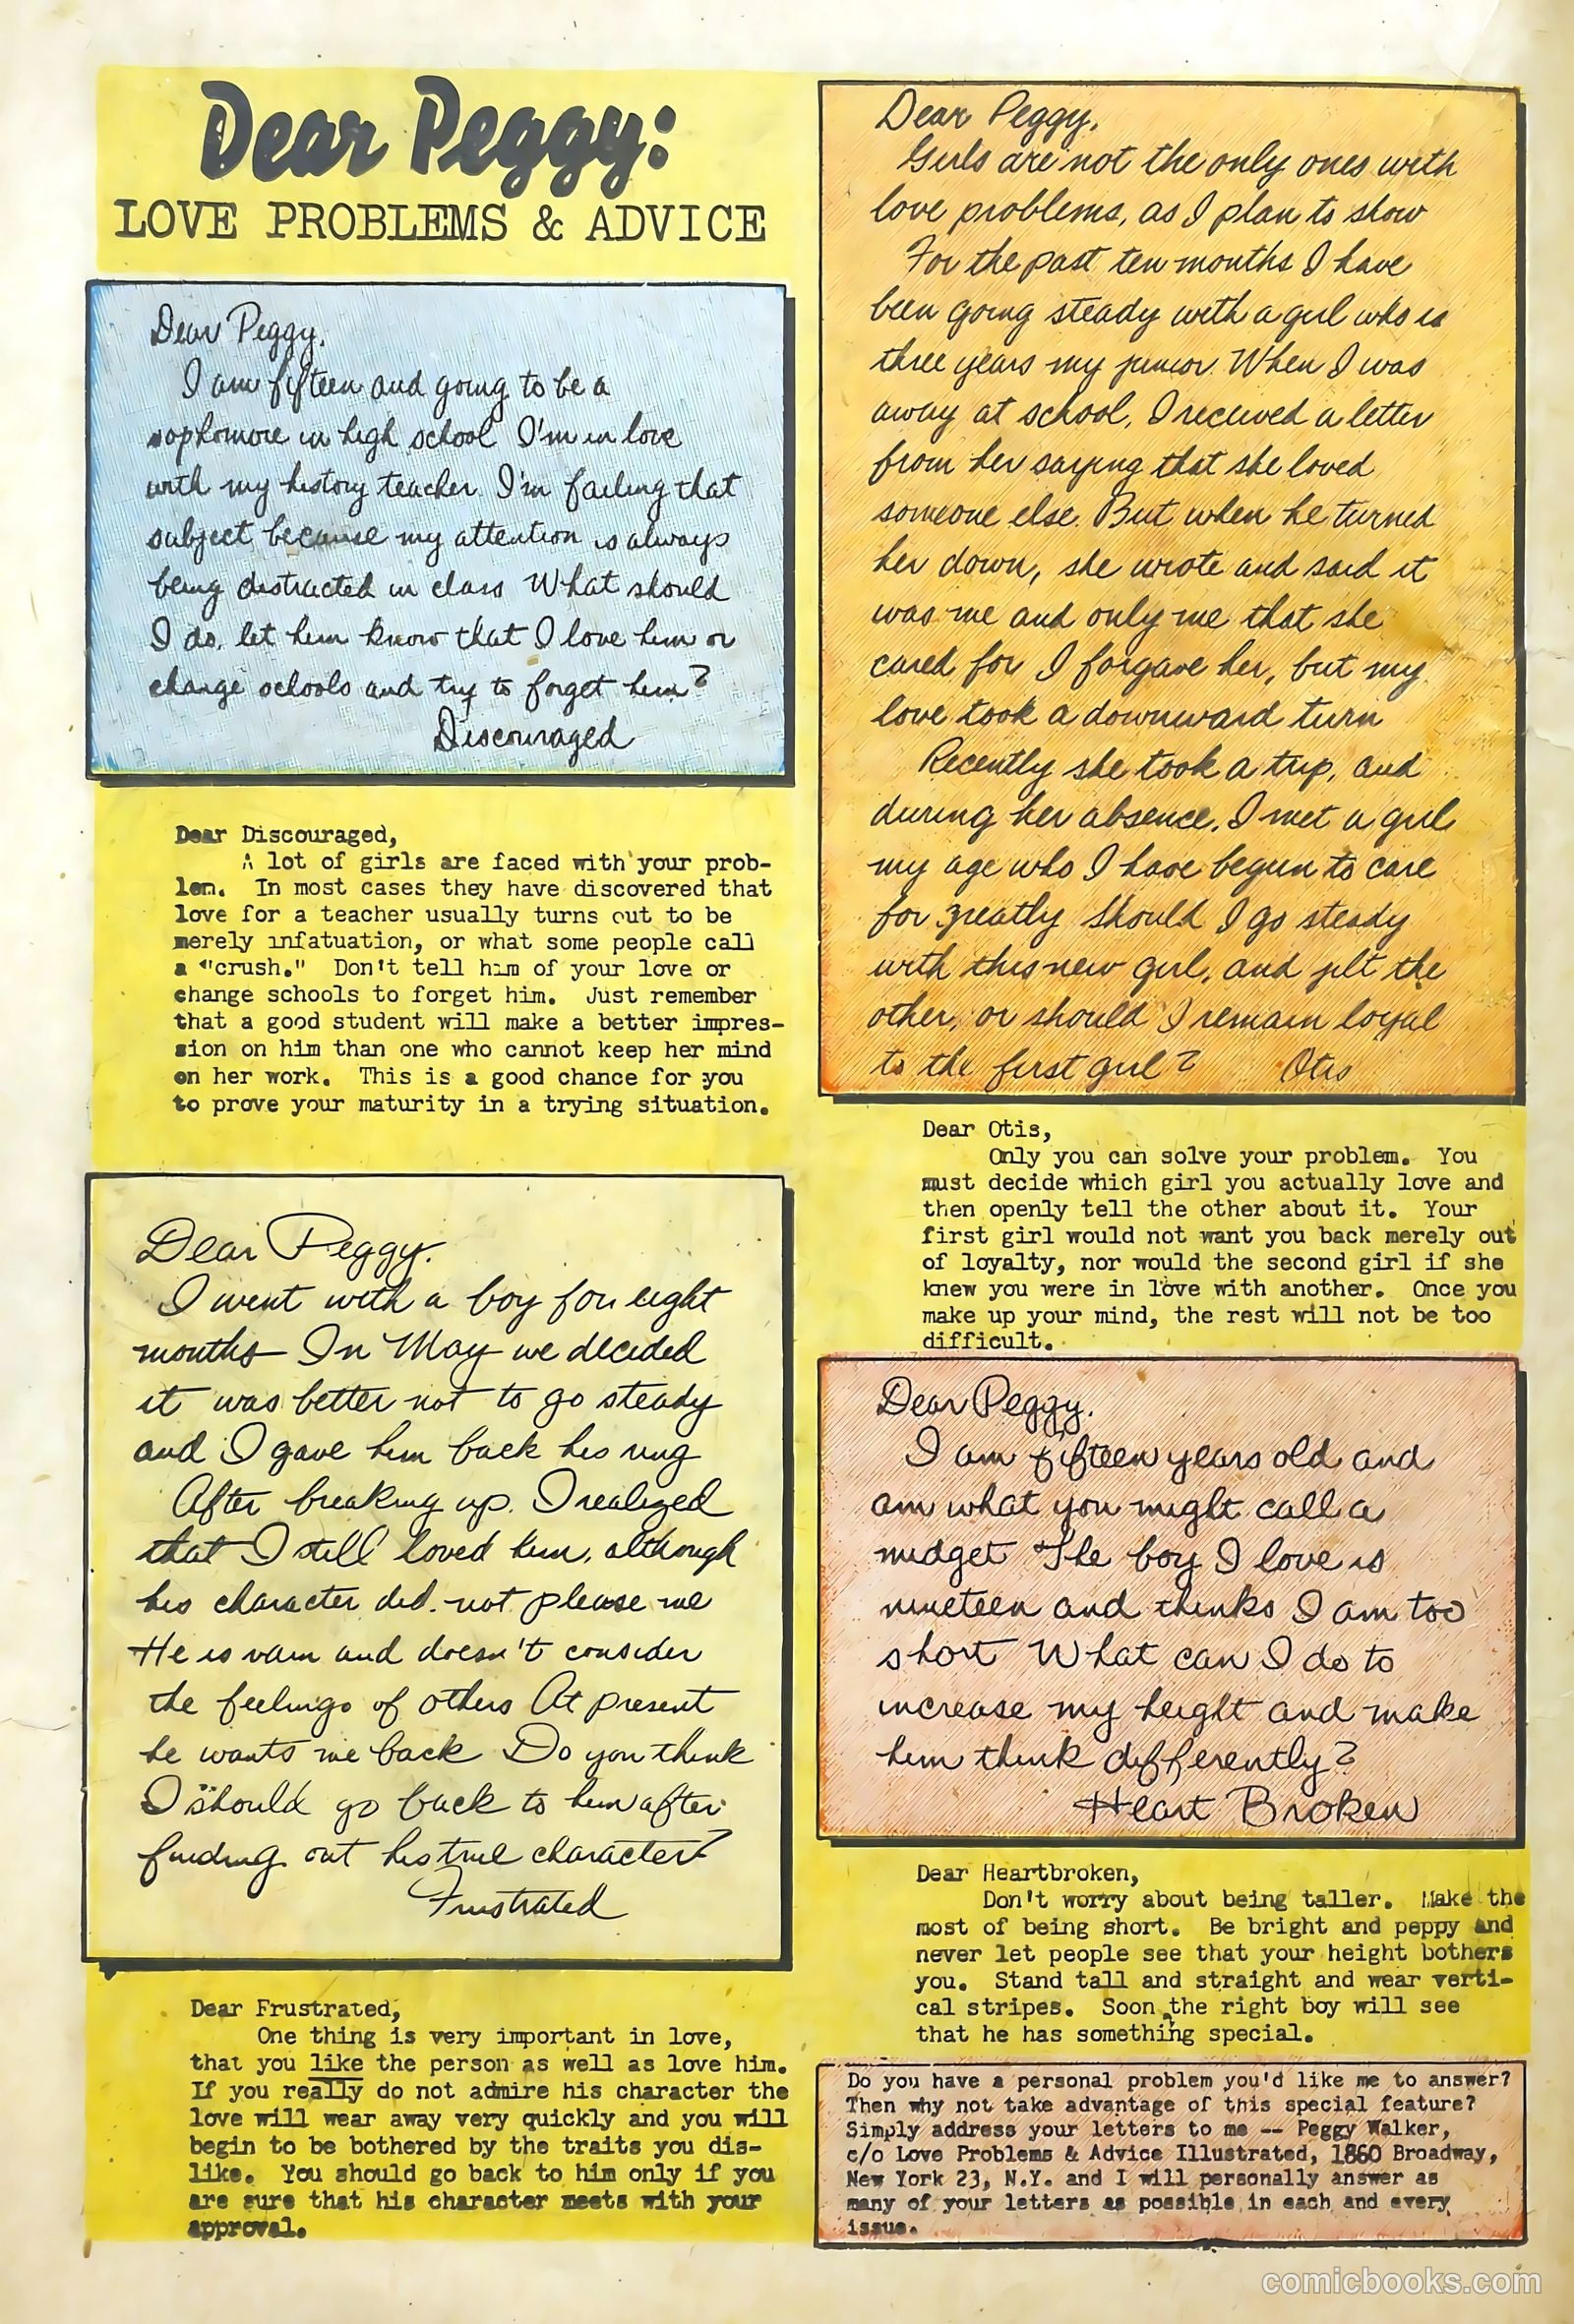 Dear Peggy:
LOVE PROBLEMS & ADVICE
Dear Peggy,
I am fifteen and going to be a
sophomore in high school I'm in love
with my history teacher. I'm failing that
subject because my attention is always
being distracted in class What should
I do, let him know that I love him or
change schools and try to forget him?
Discouraged
Dear Discouraged,
A lot of girls are faced with your prob-
lem. In most cases they have discovered that
love for a teacher usually turns out to be
merely infatuation, or what some people call
a "crush." Don't tell him of your love or
change schools to forget him. Just remember
that a good student will make a better impres-
sion on him than one who cannot keep her mind
on her work. This is a good chance for you
to prove your maturity in a trying situation.
Dear Peggy.
I went with a boy for eight
months In May we decided
it was better not to go steady
and I gave him back his ring
After breaking up, I realized
that I still loved him, although
his character did not please me
He is vain and doesn't consider
the feelings of others At present
he wants me back Do you think
I should go back to him after
finding out his true character?
Frustrated
Dear Frustrated,
One thing is very important in love,
that you like the person as well as love him.
If you really do not admire his character the
love will wear away very quickly and you will
begin to be bothered by the traits you dis-
like. You should go back to him only if you
are sure that his character meets with your
approval.
Dear Peggy,
Girls are not the only ones with
love problems, as I plan to show
For the past ten months I have
been going steady with a girl who is
three years my junior. When I was
away at school, I received a letter
from her saying that she loved
someone else. But when he turned
her down, she wrote and said it
was me and only me that she
cared for I forgave her, but my
love took a downward turn
Recently she took a trip, and
during her absence, I met a girl
my age who I have begun to care
for greatly Should I go steady
with this new girl, and jilt the
other, or should I remain loyal
to the first girl? Otis
Dear Otis,
Only you can solve your problem. You
must decide which girl you actually love and
then openly tell the other about it. Your
first girl would not want you back merely out
of loyalty, nor would the second girl if she
knew you were in love with another. Once you
make up your mind, the rest will not be too
difficult.
Dear Peggy.
I am fifteen years old and
am what you might call a
midget The boy I love is
nineteen and thinks I am too
short What can I do to
increase my height and make
him think differently?
Heart Broken
Dear Heartbroken,
Don't worry about being taller. Make the
most of being short. Be bright and peppy and
never let people see that your height bothers
you. Stand tall and straight and wear verti-
cal stripes. Soon the right boy will see
that he has something special.
Do you have a personal problem you'd like me to answer?
Then why not take advantage of this special feature?
Simply address your letters to me -- Peggy Walker,
c/o Love Problems & Advice Illustrated, 1860 Broadway,
New York 23, N.Y. and I will personally answer as
many of your letters as possible in each and every
issue.
comicbooks.com